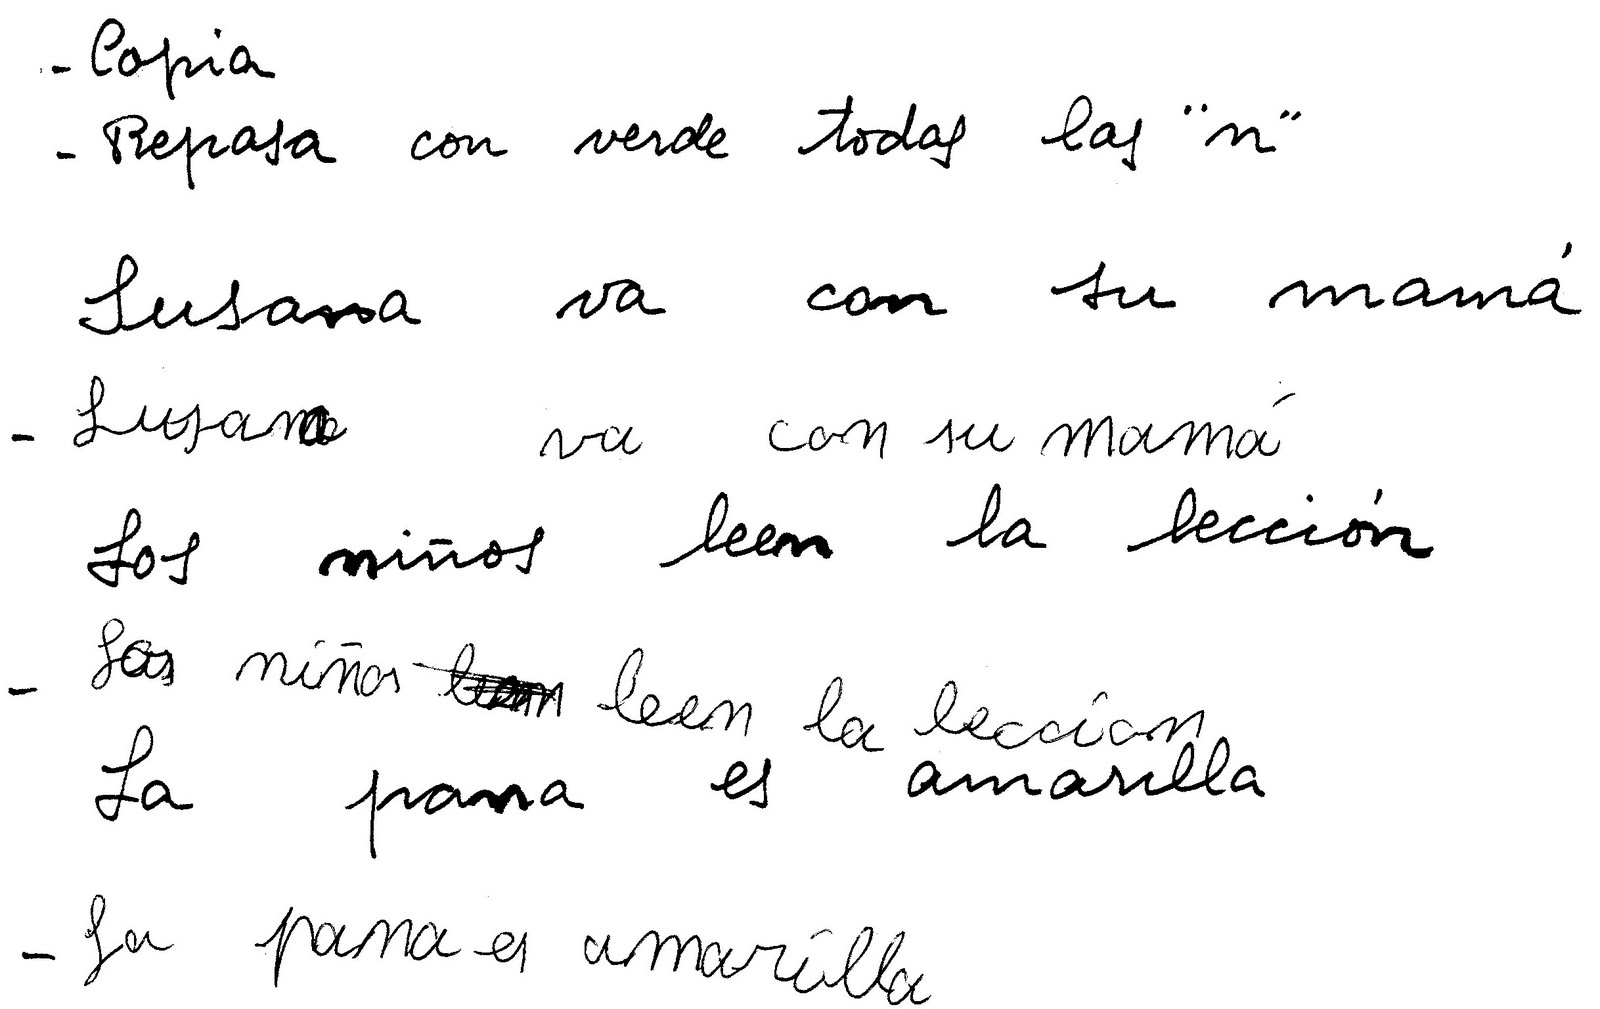 - Copia
- Repasa con verde todas las "n"
Susana va con su mamá
- Susana va con su mamá
Los niños leen la lección
- Los niños leen la leccion
La pana es amarilla
- La pana es amarilla